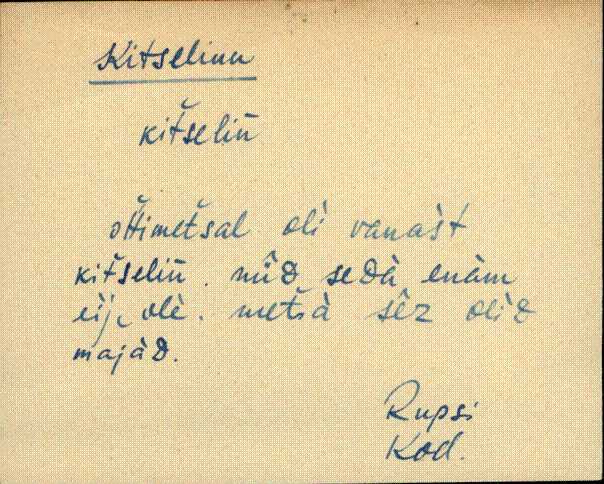 Kitselinn
kit̆selin̄
ŏttimet̆sal oli vanast
kit̆selin̄. nüᴅ̂ seᴅà enàm
eij ole. metsà sêz oliᴅ
majàᴅ.
Rupsi
Kod.